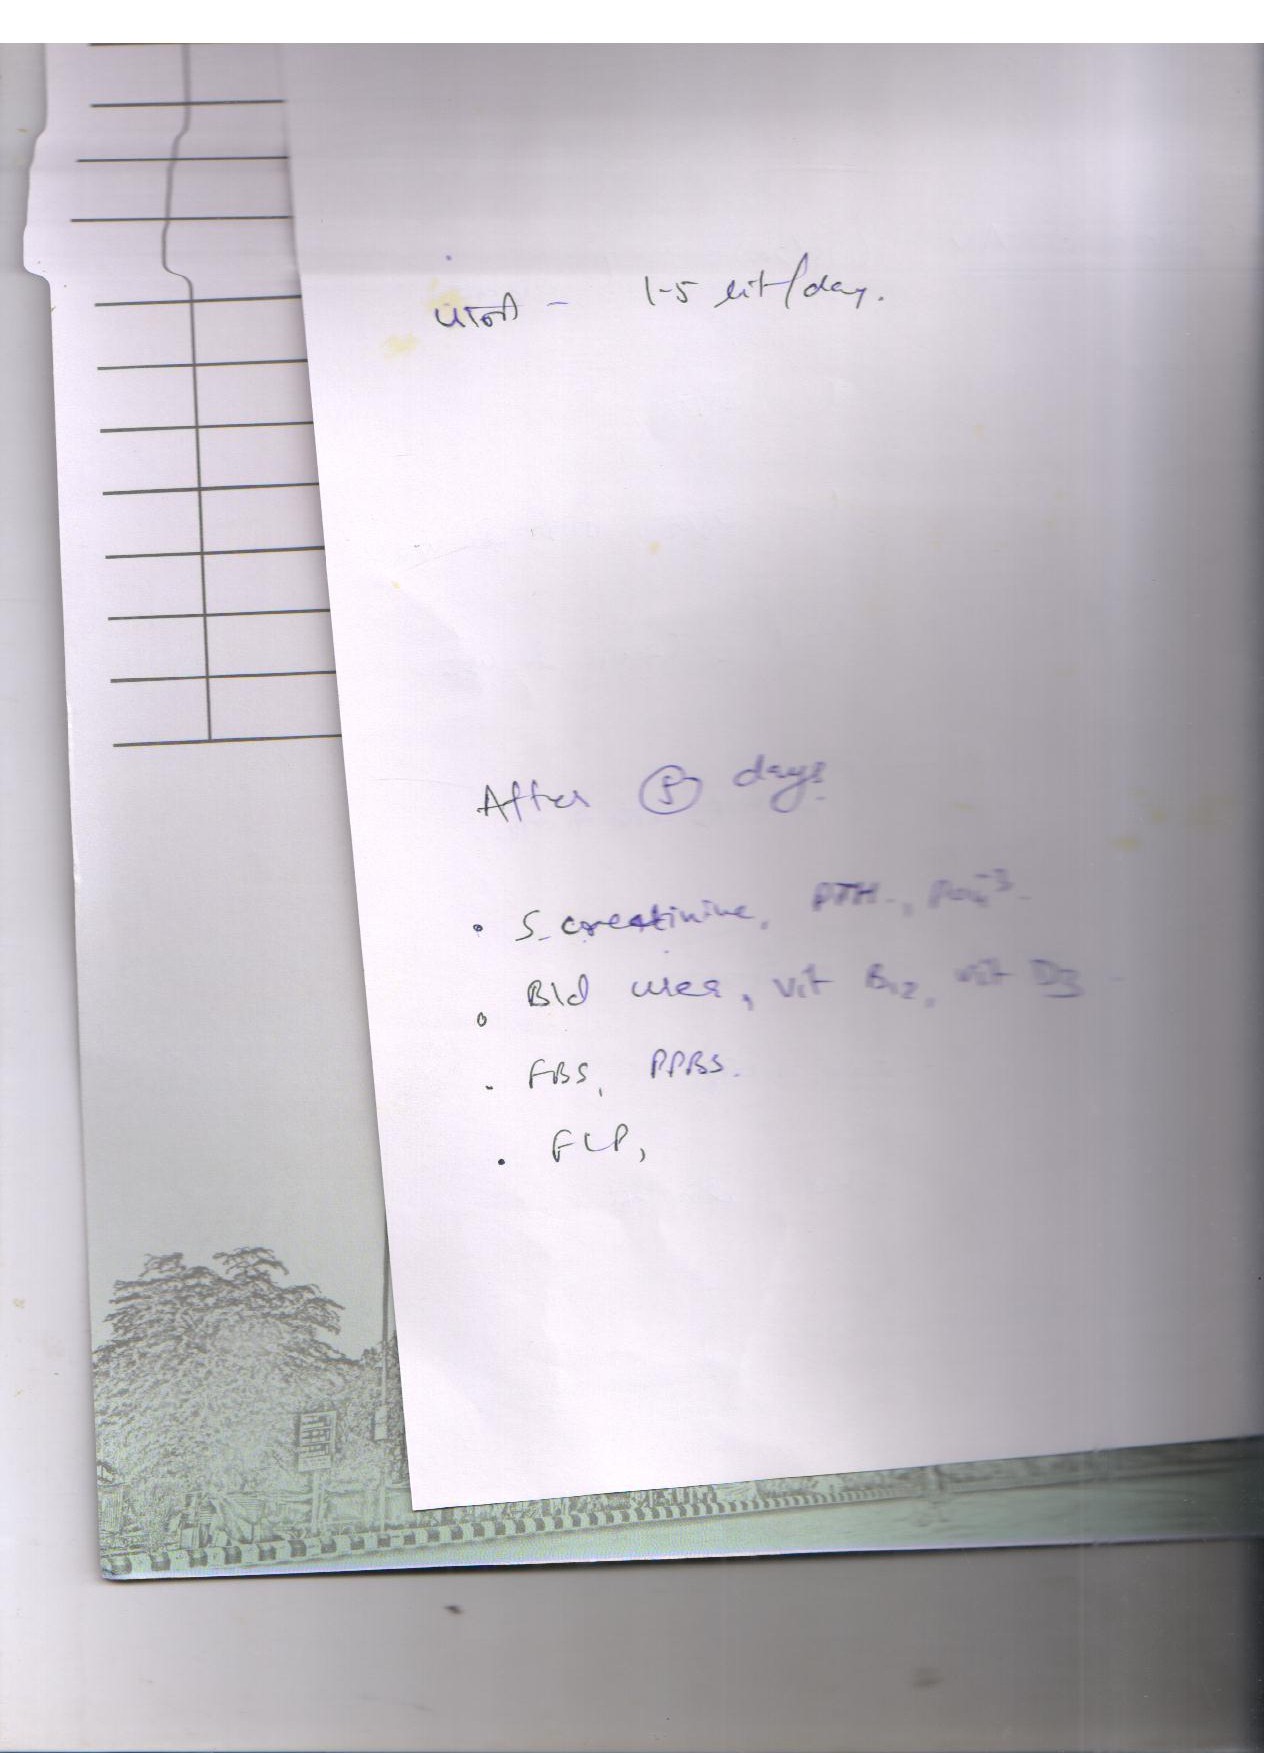 पानी - 1-5 lit/day.
After 5 days
• S. creatinine, PTH, PO4-3
• Bld urea, vit B12, vit D3
• FBS, PPBS.
• FLP,